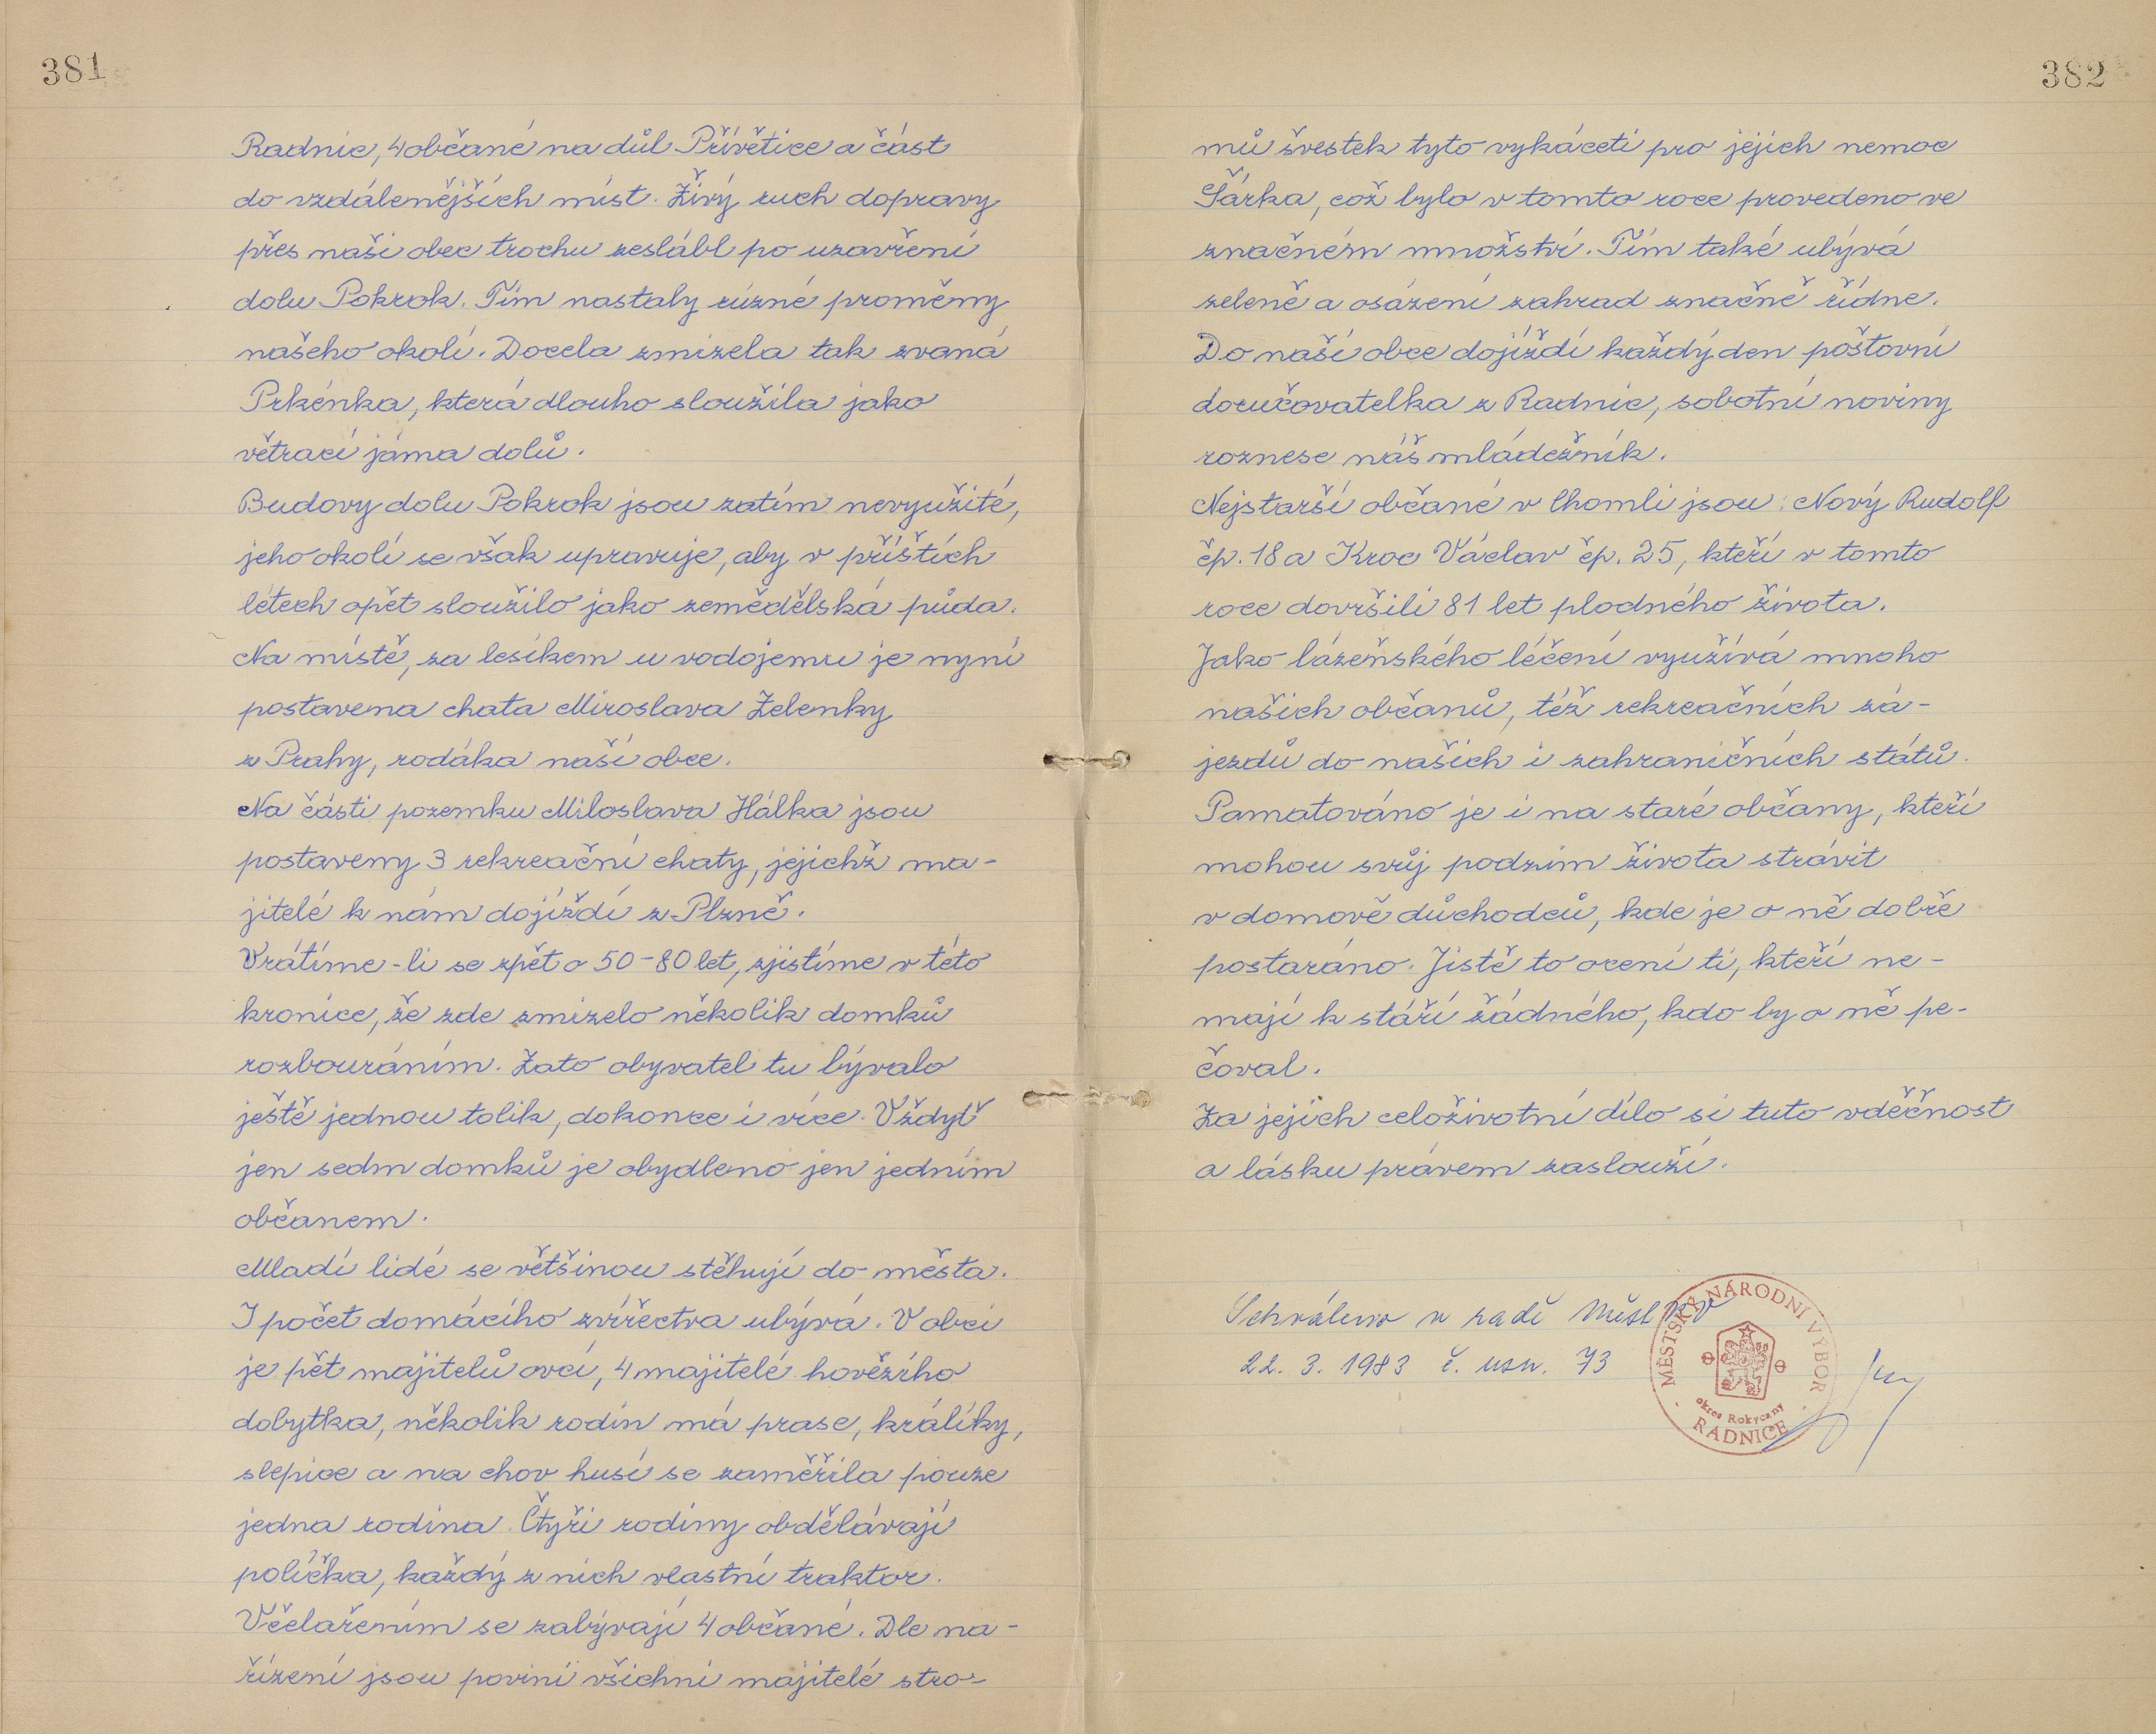 381
Radnic, 4 občané na důl Přívětice a část
do vzdálenějších míst. Živý ruch dopravy
přes naši obec trochu zeslábl po uzavření
dolu Pokrok. Tím nastaly rúzné proměny
našeho okolí. Docela zmizela tak zvaná
Prkénka, která dlouho sloužila jako
větrací jáma dolů.
Budovy dolu Pokrok jsou zatím nevyužité,
jeho okolí se však upravuje, aby v příštích
létech opět sloužilo jako zemědělská půda.
Na místě, za lesíkem u vodojemu je nyní
postavena chata Miroslava Zelenky
z Prahy, rodáka naší obce.
Na části pozemku Miloslava Hálka jsou
postaveny 3 rekreační chaty, jejichž ma-
jitelé k nám dojíždí z Plzně.
Vrátíme-li se zpět o 50-80 let, zjistíme v této
kronice, že zde zmizelo několik domků
rozbouráním. Zato obyvatel tu bývalo
ještě jednou tolik, dokonce i více. Vždyť
jen sedm domků je obydleno jen jedním
občanem.
Mladí lidé se většinou stěhují do města.
I počet domácího zvířectva ubývá. V obci
je pět majitelů ovcí, 4 majitelé hovězího
dobytka, několik rodin má prase, králíky,
slepice a na chov husí se zaměřila pouze
jedna rodina. Čtyři rodiny obdělávají
políčka, každý z nich vlastní traktor.
Včelařením se zabývají 4 občané. Dle na-
řízení jsou povini všichni majitelé stro-
382
mů švestek tyto vykáceti pro jejich nemoc
Šárka, což bylo v tomto roce provedeno ve
značném množství. Tím také ubývá
zeleně a osázení zahrad značně řídne.
Do naší obce dojíždí každý den poštovní
doručovatelka z Radnic, sobotní noviny
roznese náš mládežník.
Nejstarší občané v Chomli jsou: Nový Rudolf
čp. 18 a Kroc Václav čp. 25, kteří v tomto
roce dovršili 81 let plodného života.
Jako lázeňského léčení využívá mnoho
našich občanů, též rekreačních zá-
jezdů do našich i zahraničních států.
Pamatováno je i na staré občany, kteří
mohou svůj podzim života strávit
v domově důchodců, kde je o ně dobře
postaráno. Jistě to ocení ti, kteří ne-
mají k stáří žádného, kdo by o ně pe-
čoval.
Za jejich celoživotní dílo si tuto vděčnost
a lásku právem zaslouží.
Schváleno v radě MěstNV
22. 3. 1983 č. usn. 73
MĚSTSKÝ NÁRODNÍ VÝBOR
okres Rokycany
RADNICE